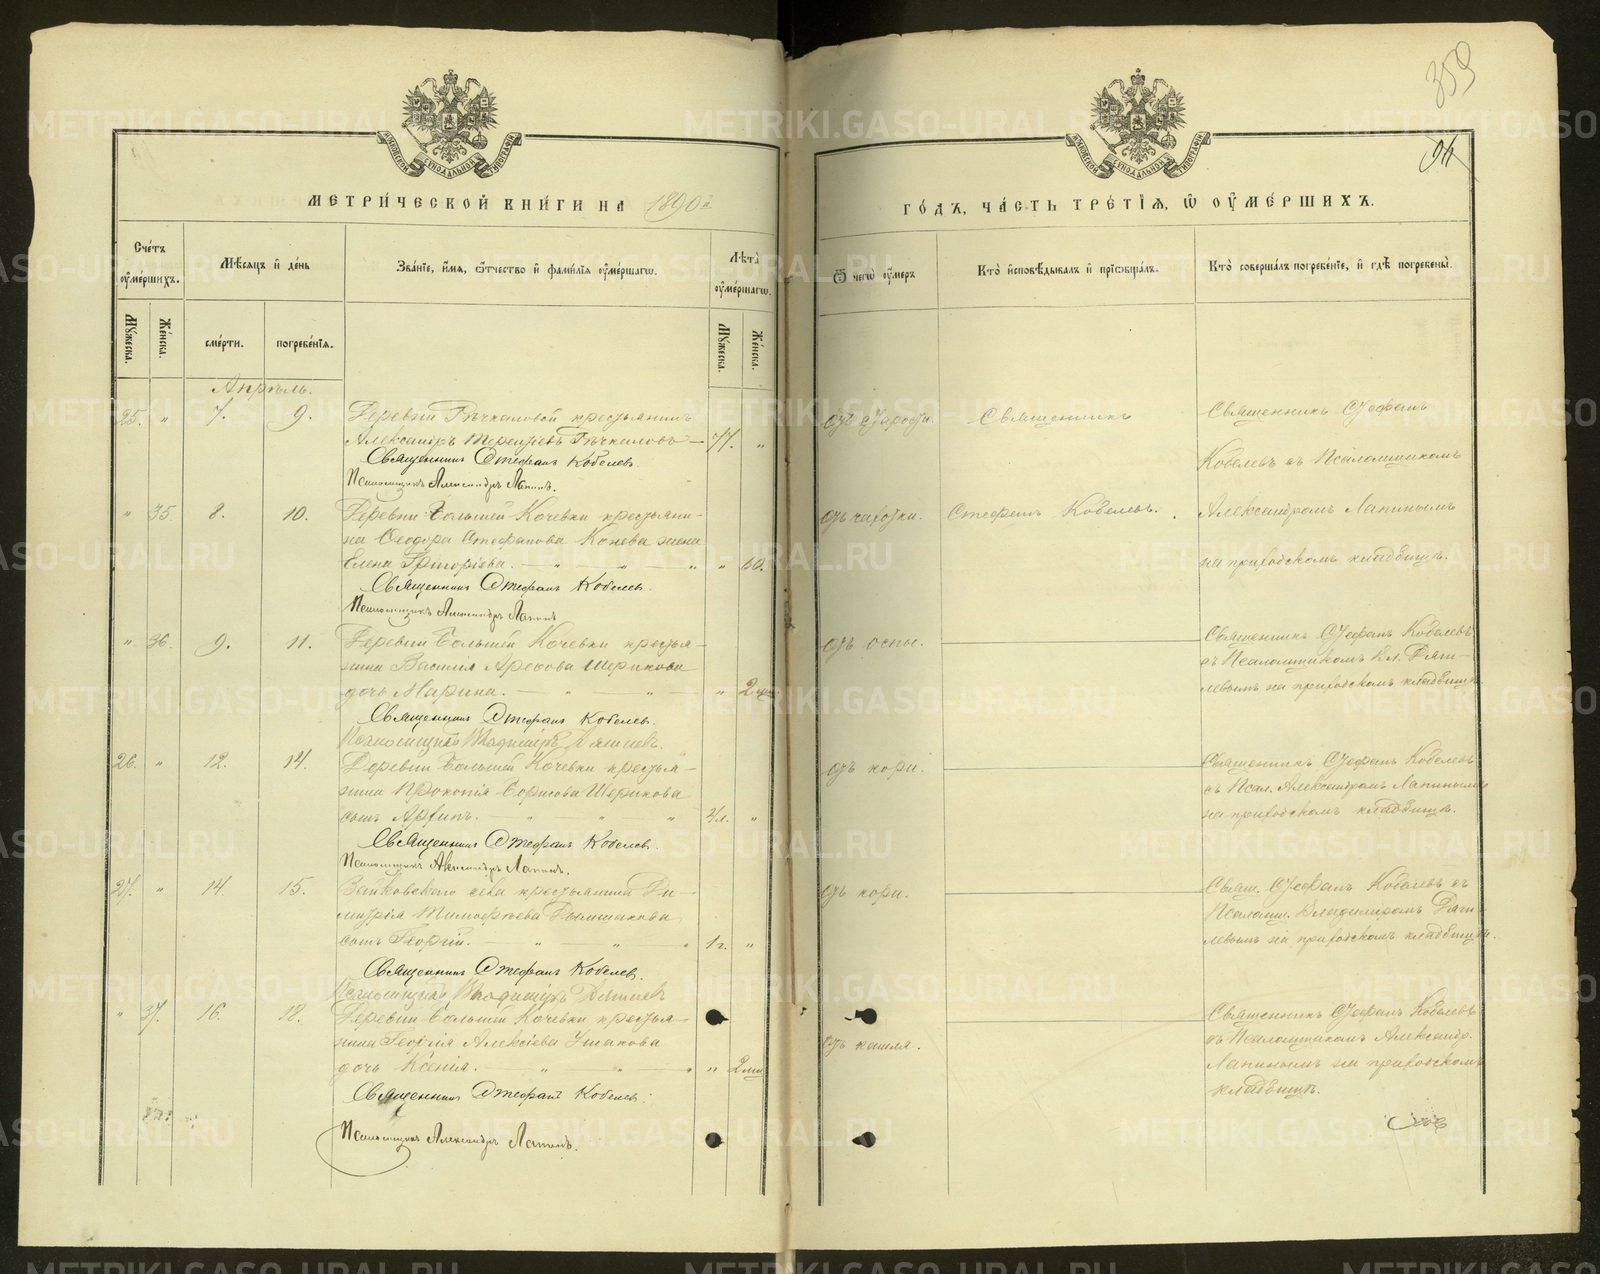 359
94
МЕТРИ́ЧЕСКОЙ КНИ́ГИ НА 1890й
ГО́ДЪ, ЧА́СТЬ ТРЕ́ТІЯ, Ѿ ОУ҆МЕ́РШИХЪ.
Сче́тъ оу҆ме́ршихъ.
Мѣ́сяцъ и҆ де́нь
Зва́ніе, и҆́мя, ѻ҆́тчество и҆ фами́лія оу҆ме́ршагѡ.
Лѣ́та оу҆ме́ршагѡ.
Ѿ чегѡ̀ оу҆́меръ
Кто̀ и҆сповѣ́дывалъ и҆ прїѡбща́лъ.
Кто̀ соверша́лъ погребе́ніе, и҆ гдѣ̀ погребены̀.
Мꙋ́жеска.
Же́нска.
сме́рти.
погребе́нія.
Мꙋ́жеска.
Же́нска.
Апрѣль.
25. " 7. 9. Деревни Рѣчкаловой крестьянинъ
Александръ Терентіевъ Рѣчкаловъ — 77. "
Священникъ Стефанъ Кобелевъ.
Псаломщикъ Александръ Лапинъ.
отъ старости.
Священникъ
Священникъ Стефанъ
Кобелевъ съ Псаломщикомъ
" 35 8. 10. Деревни Большей Кочевки крестьяни-
на Ѳеодора Стефанова Конева жена
Елена Григоріева. — " — " — " " 60.
Священникъ Стефанъ Кобелев.
Псаломщикъ Александръ Лапинъ
отъ чахотки.
Стефанъ Кобелевъ.
Александромъ Лапинымъ
на приходскомъ кладбищѣ.
" 36. 9. 11. Деревни Большей Кочевки крестья-
нина Василія Шерикова
дочь Марина. — " — " " 2
Священникъ Стефанъ Кобелев.
Псаломщикъ Владиміръ
отъ оспы.
Священникъ Стефанъ Кобелевъ
съ Псаломщикомъ Вл. Дяги-
левымъ на приходскомъ кладбищѣ.
26. " 12. 14. Деревни Большей Кочевки крестья-
нина Прокопія Борисова Шерикова
сынъ — " " " 2л. "
Священникъ Стефанъ Кобелев.
Псаломщикъ Александръ Лапинъ.
отъ кори.
Священникъ Стефанъ Кобелевъ
съ Псал. Александромъ Лапинымъ
на приходскомъ кладбищѣ.
27. " 14. 15. Зайковскаго села крестьянина Ди-
митрія Тимоѳеева Дымшакова
сынъ Георгій. — " " " 1г. "
Священникъ Стефанъ Кобелев.
Псаломщикъ Владиміръ
отъ кори.
Свящ. Стефанъ Кобелевъ съ
Псаломщ. Владимиромъ Дяги-
левымъ на приходскомъ кладбищѣ.
" 37. 16. 18. Деревни Большей Кочевки крестья-
нина Георгія Алексіева Ушакова
дочь Ксенія. — " " " " 2
Священникъ Стефанъ Кобелев.
Псаломщикъ Александръ Лапинъ.
отъ кашля.
Священникъ Стефанъ Кобелевъ
съ Псаломщикомъ Александр.
Лапинымъ на приходскомъ
кладбищѣ.
METRIKI.GASO-URAL.RU